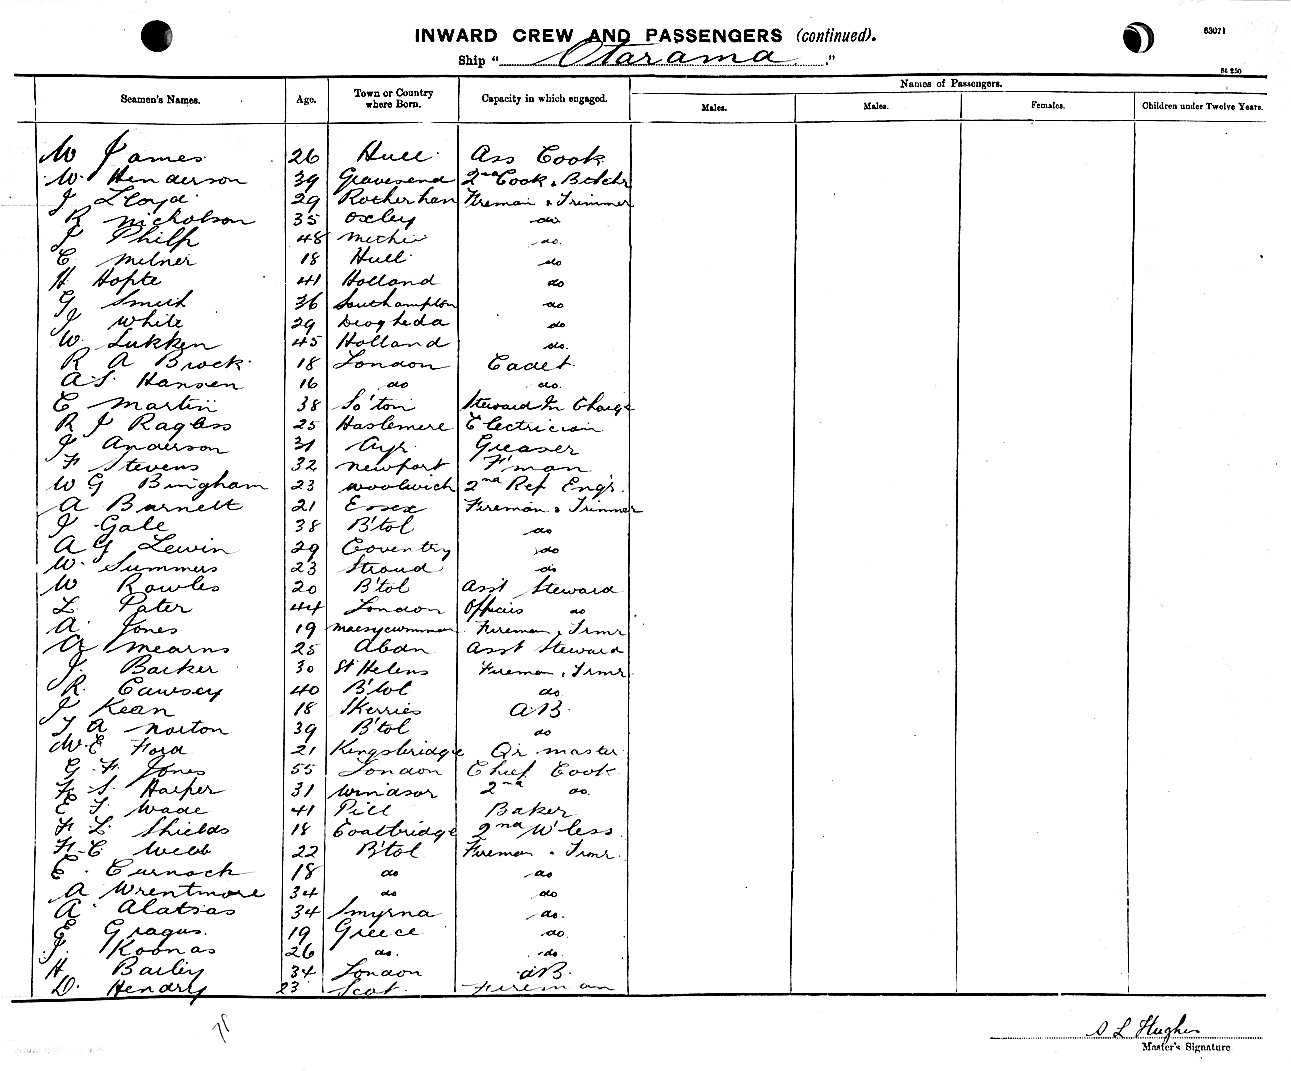 INWARD CREW AND PASSENGERS (continued).
63071
Ship "Otarama."
84 250
Seamen's Names. Age. Town or Country where Born. Capacity in which engaged. Names of Passengers.
Males. Males. Females. Children under Twelve Years.
W James 26 Hull Ass Cook
W. Henderson 39 Gravesend 2nd Cook & Butchr
J Lloyd 29 Rotherham Fireman & Trimmer
R Nicholson 35 Oxley do
J Philp 48 do.
C Milner 18 Hull do
H Hopte 41 Holland do
G Smith 36 Southampton do
J White 29 Drogheda do
W. Lukken 45 Holland do.
R A Brock 18 London Cadet
A. S. Hansen 16 do do.
C Martin 38 So'ton Steward In Charge
R J Raglass 25 Haslemere Electrician
J Anderson 31 Ayr Greaser
F Stevens 32 Newport F'man
W G Bingham 23 Woolwich 2nd Ref Engr.
A Barnett 21 Essex Fireman & Trimmer
J Gale 38 B'tol do
A G Lewin 29 Coventry do
W. Summers 23 Stroud do
W Rowles 20 B'tol Asst Steward
L Pater 44 London Officers do
A. Jones 19 Maesycwmmer Fireman & Trmr
A Mearns 25 Abdn Asst Steward
J. Barker 30 St Helens Fireman & Trmr
R. Cawsey 40 B'tol do
J Kean 18 Skerries AB.
T A Norton 39 B'tol do
W. E Ford 21 Kingsbridge Qr master
G. F. Jones 55 London Chief Cook
F S. Harper 31 Windsor 2nd do.
E J. Wade 41 Pill Baker
F L. Shields 18 Coatbridge 2nd W'less
F. C Webb 22 B'tol Fireman & Trmr.
E. Curnock 18 do do
A Wrentmore 34 do do
A Alatsas 34 Smyrna do.
E Gragus. 19 Greece do.
J. Koonas 26 do. do.
H Bailey 34 London AB.
D. Hendry 23 Scot. Fireman
S L Hughes
Master's Signature